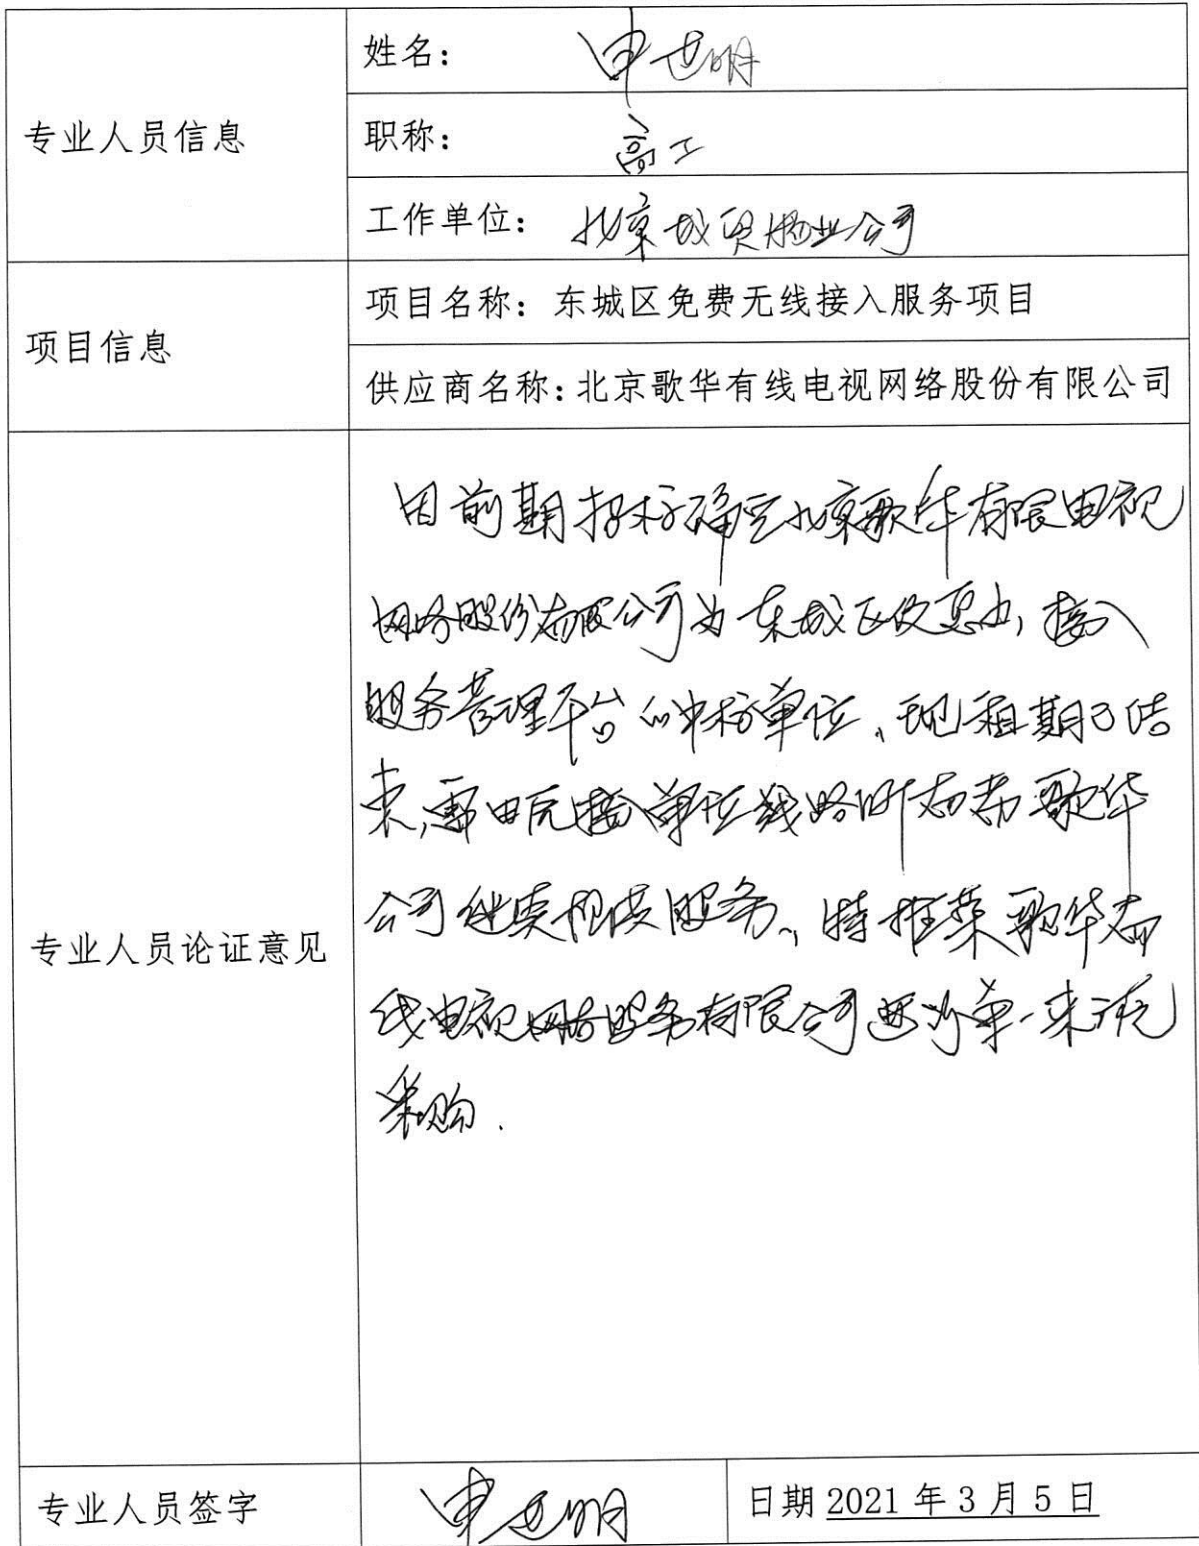 专业人员信息
姓名: 申世明
职称: 高工
工作单位: 北京城贸物业公司
项目信息
项目名称: 东城区免费无线接入服务项目
供应商名称:北京歌华有线电视网络股份有限公司
专业人员论证意见
因前期招标确定北京歌华有限电视
网络股份有限公司为东城区 接入
服务管理平台的中标单位、现租期已结
束,需 单位线路所有者歌华
公司继续提供服务, 特推荐歌华有
线电视网络服务有限公司 单一来源
采购.
专业人员签字
申世明
日期 2021 年 3 月 5 日